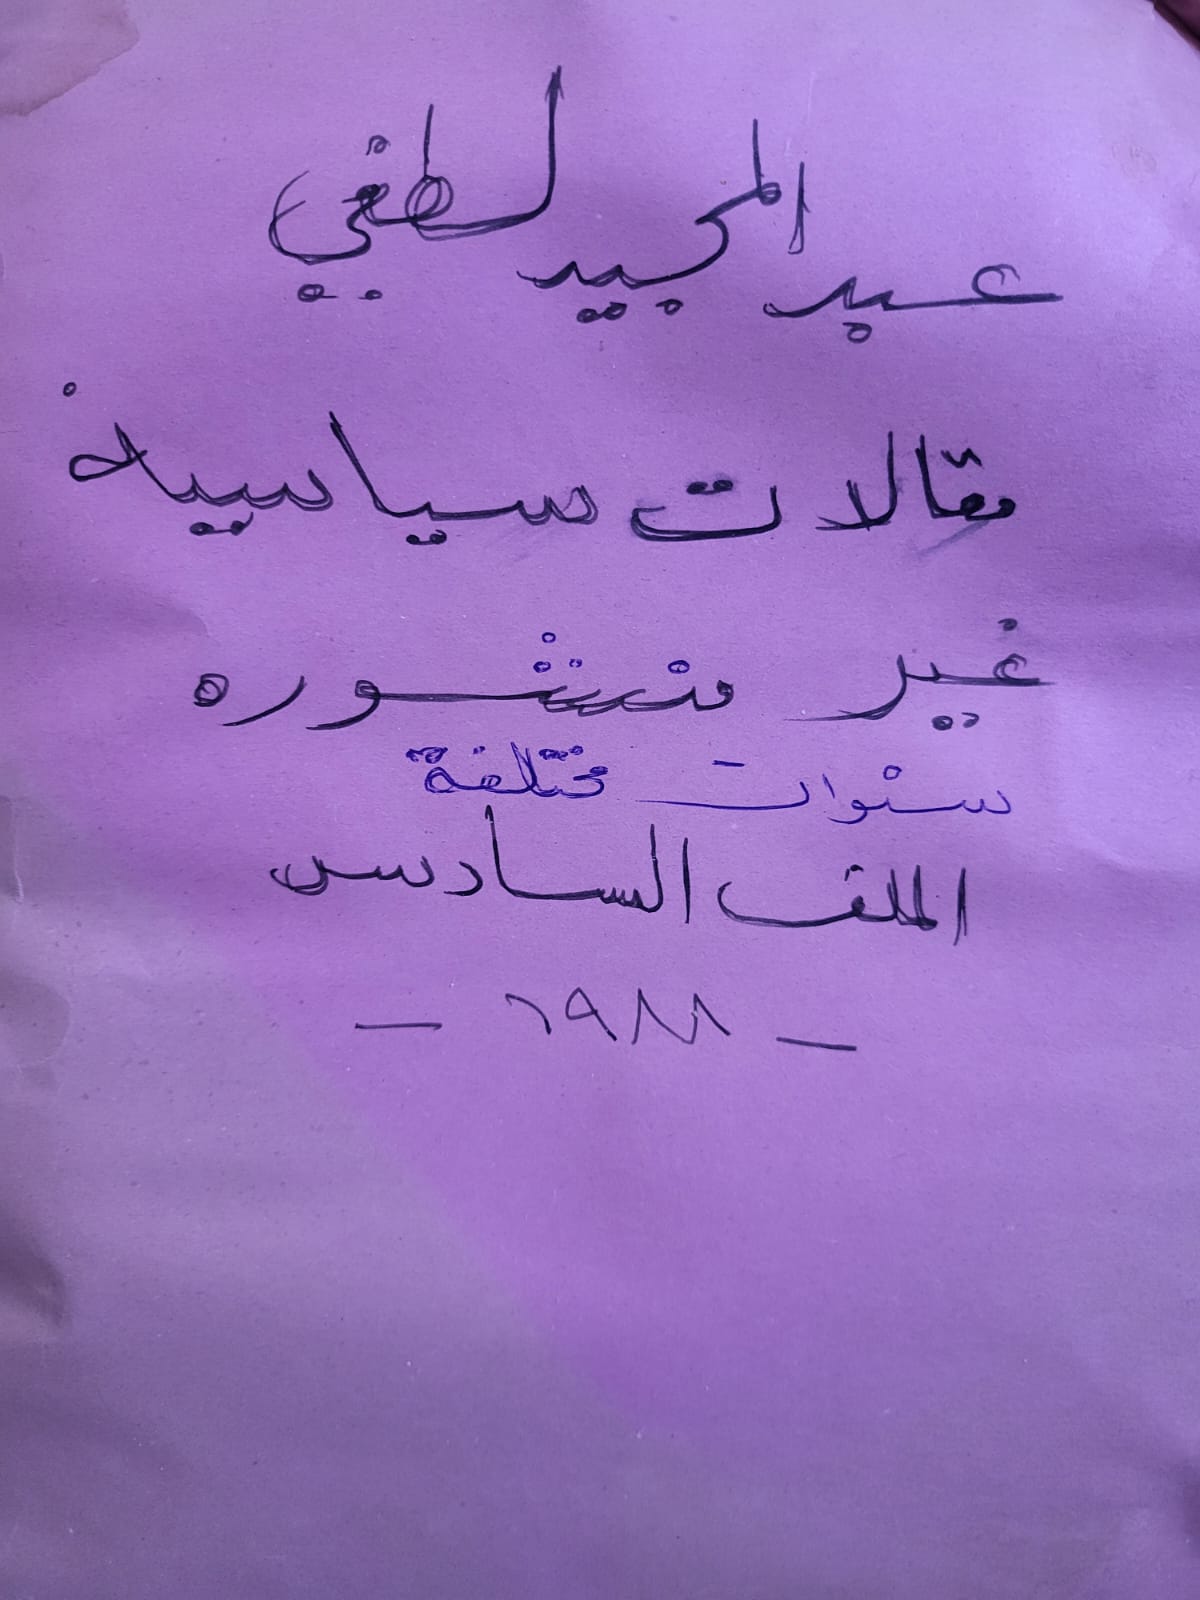 عبد المجيد لطفي
مقالات سياسية
غير منشوره
سنوات مختلفة
الملف السادس
- ١٩٨٨ -